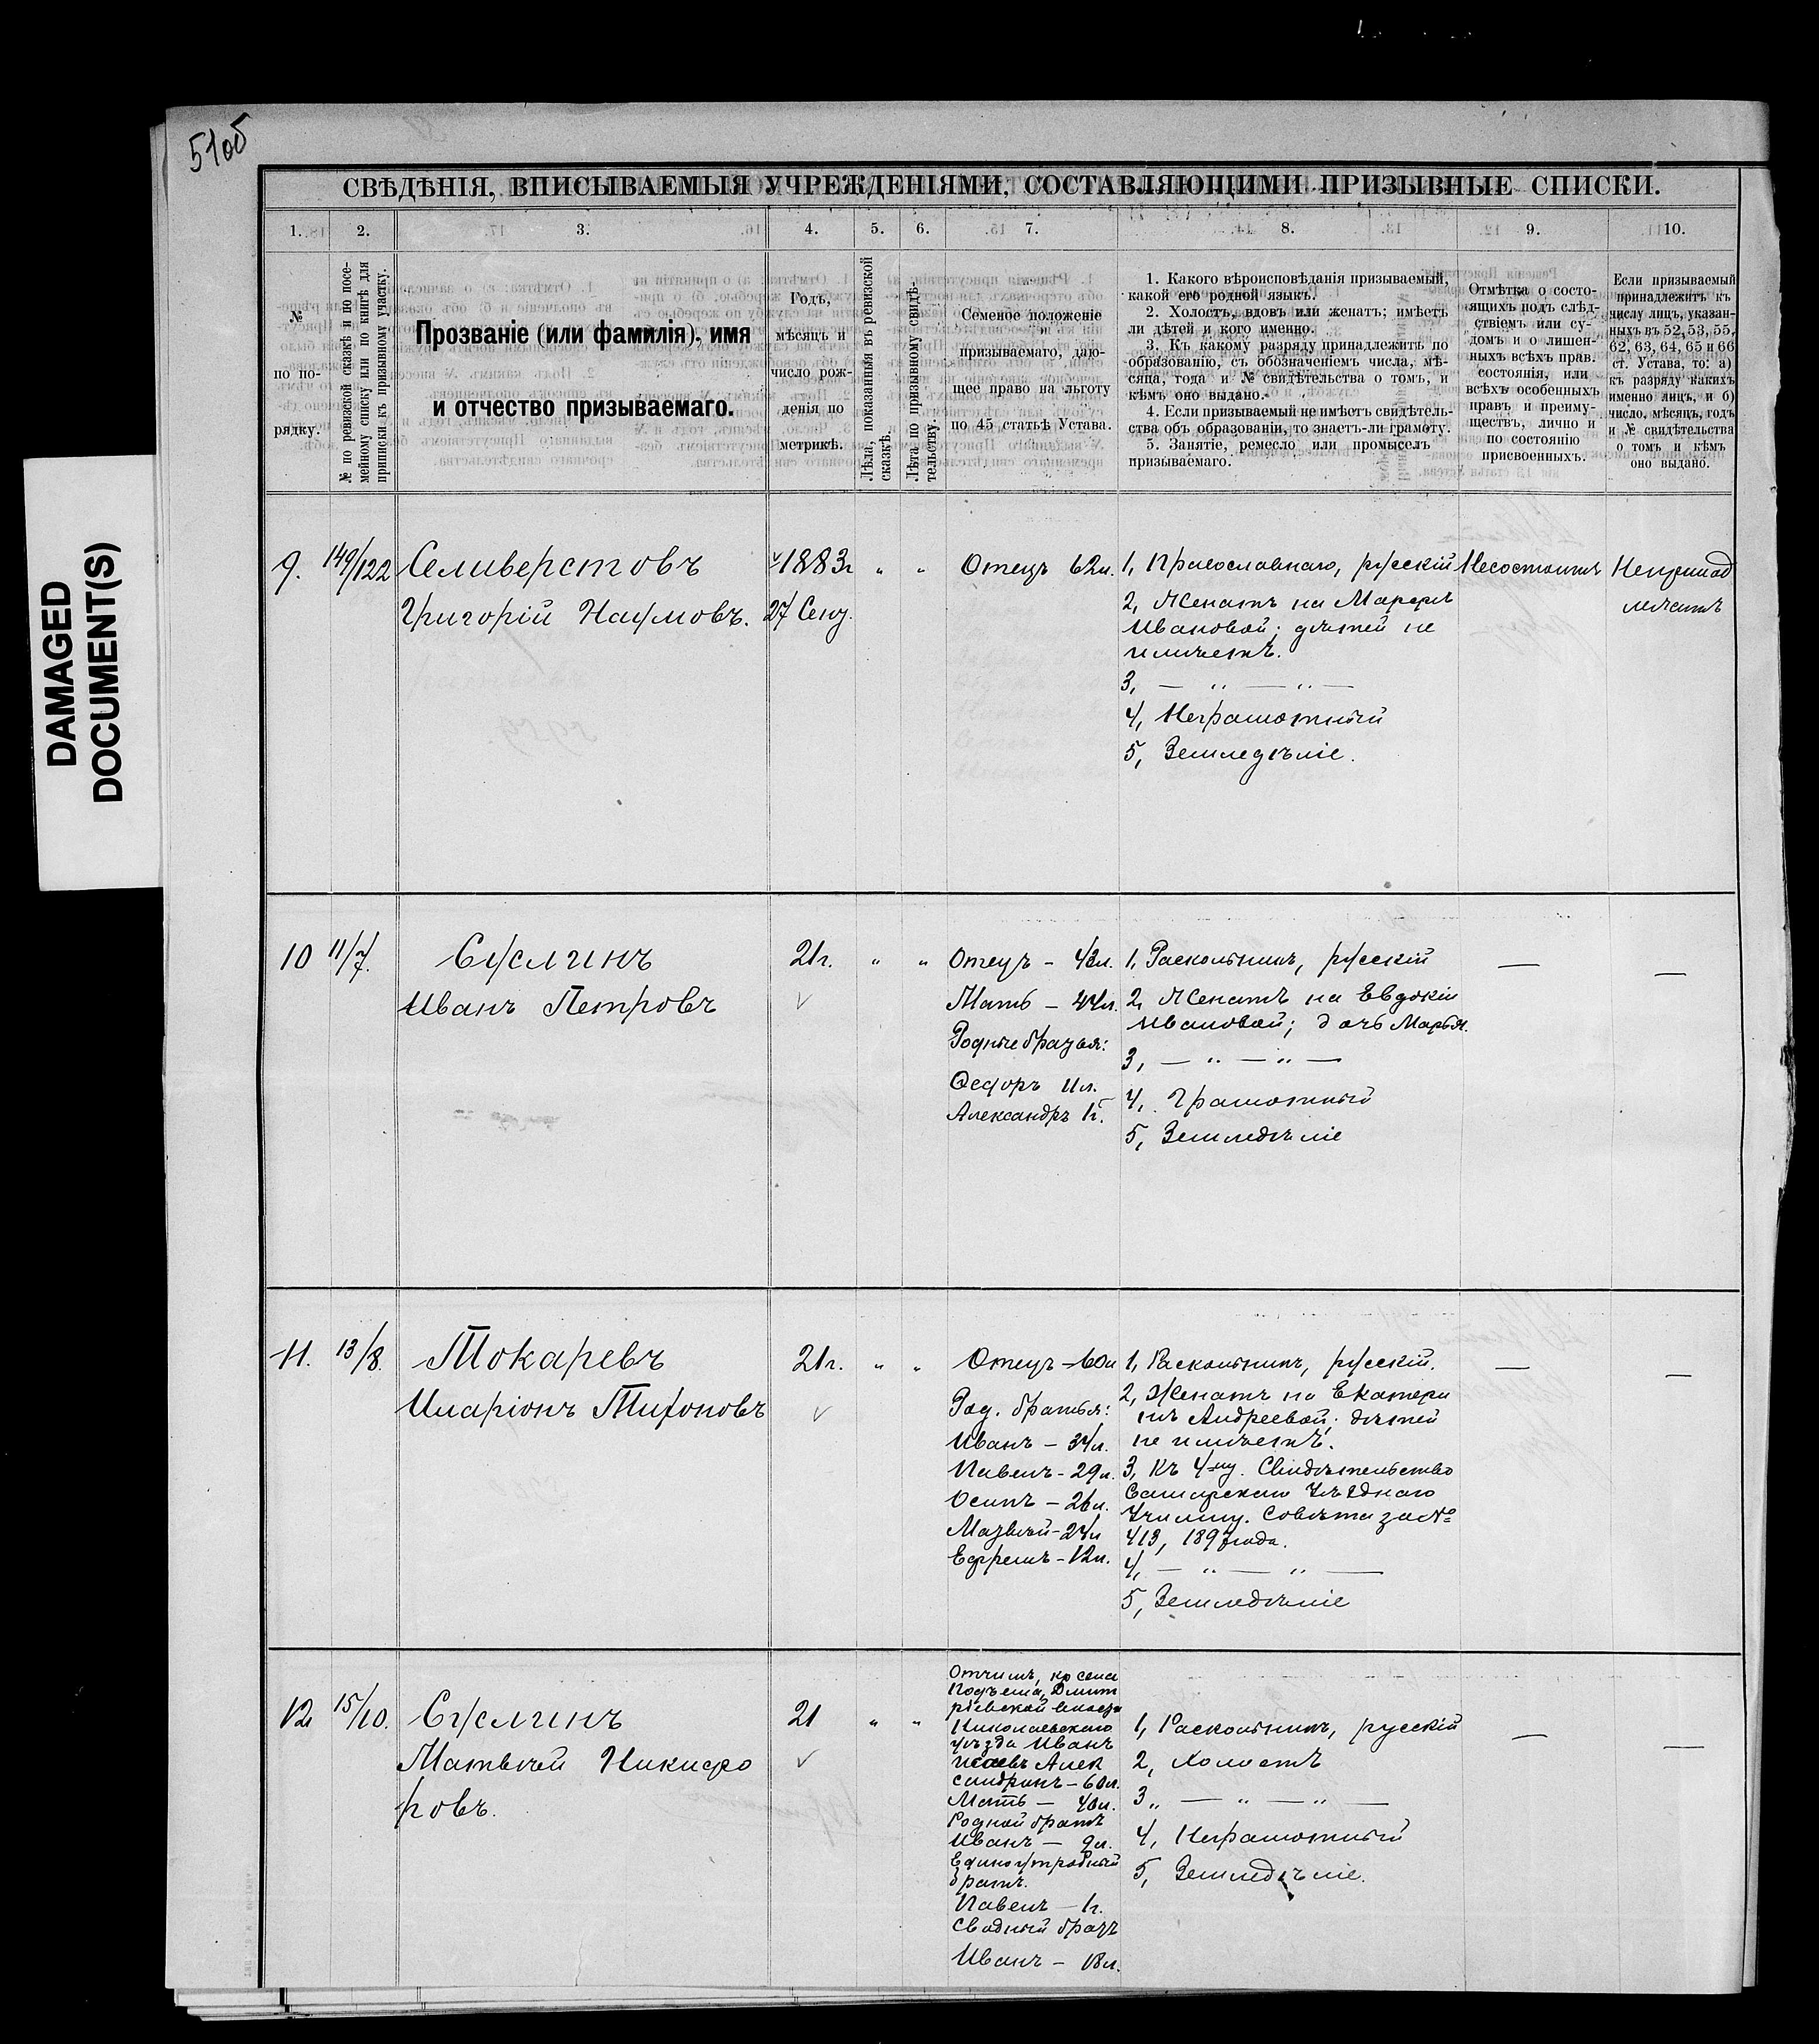 51об
DAMAGED
DOCUMENT(S)
СВѢДѢНІЯ, ВПИСЫВАЕМЫЯ УЧРЕЖДЕНІЯМИ, СОСТАВЛЯЮЩИМИ ПРИЗЫВНЫЕ СПИСКИ.
1. 2. 3. 4. 5. 6. 7. 8. 9. 10.
№
по по-
рядку.
№ по ревизской сказкѣ и по посе-
мейному списку или по книгѣ для
приписки къ призывному участку.
Прозваніе (или фамилія), имя
и отчество призываемаго.
Годъ,
мѣсяцъ и
число рож-
денія по
метрикѣ.
Лѣта, показанныя въ ревизской
сказкѣ.
Лѣта по призывному свидѣ-
тельству.
Семейное положеніе
призываемаго, даю-
щее право на льготу
по 45 статьѣ Устава.
1. Какого вѣроисповѣданія призываемый,
какой его родной языкъ.
2. Холостъ, вдовъ или женатъ; имѣетъ
ли дѣтей и кого именно.
3. Къ какому разряду принадлежитъ по
образованію, съ обозначеніемъ числа, мѣ-
сяца, года и № свидѣтельства о томъ, и
кѣмъ оно выдано.
4. Если призываемый не имѣетъ свидѣтель-
ства объ образованіи, то знаетъ-ли грамоту.
5. Занятіе, ремесло или промыселъ
призываемаго.
Отмѣтка о состо-
ящихъ подъ слѣд-
ствіемъ или су-
домъ и о лишен-
ныхъ всѣхъ прав.
состоянія, или
всѣхъ особенныхъ
правъ и преиму-
ществъ, лично и
по состоянію
присвоенныхъ.
Если призываемый
принадлежитъ къ
числу лицъ, указан-
ныхъ въ 52, 53, 55,
62, 63, 64, 65 и 66
ст. Устава, то: а)
къ разряду какихъ
именно лицъ, и б)
число, мѣсяцъ, годъ
и № свидѣтельства
о томъ и кѣмъ
оно выдано.
9. 149/122 Селиверстовъ
Григорій Наумовъ.
1883г
27 Сент.
" "
Отецъ 62л.
1, Православнаго, русскій
2, Женатъ на Марѳѣ
Ивановой; дѣтей не
имѣетъ.
3, — " — " —
4, Неграмотный
5, Земледѣліе.
Несостоитъ
Непринад
лежитъ
10 11/7. Суслинъ
Иванъ Петровъ
21г.
" "
Отецъ - 43л.
Мать - 44л.
Родные братья:
Ѳедоръ 11л.
Александръ 1г.
1, Раскольникъ, русскій
2, Женатъ на Евдокіи
Ивановой; дочь Марья.
3, — " — " —
4, Грамотный
5, Земледѣліе
—
—
11. 13/8. Токаревъ
Иларіонъ Тихоновъ
21г.
" "
Отецъ - 60л
Род. братья:
Иванъ - 34л.
Павелъ - 29л.
Осипъ - 26л.
Матвѣй - 24л
Ефремъ - 12л.
1, Раскольникъ, русскій.
2, Женатъ на Екатери
нѣ Андреевой; дѣтей
не имѣетъ.
3, Къ 4-му. Свидѣтельство
Самарскаго Уѣзднаго
Училищ. Совѣта за №
413, 1897 года.
4, — " — " —
5, Земледѣліе
—
—
12 15/10. Суслинъ
Матвѣй Никифо
ровъ.
21
" "
Отчимъ, кр села
Подъема, Дмит
ріевской волости
Николаевскаго
уѣзда Иванъ
Исаевъ Алек
сандринъ - 60л.
Мать - 40л.
Родной братъ
Иванъ - 9л.
Единоутробный
братъ.
Павелъ - 1г.
Сводный братъ
Иванъ - 18л.
1, Раскольникъ, русскій
2, Холостъ
3, — " — " —
4, Неграмотный
5, Земледѣліе.
—
—